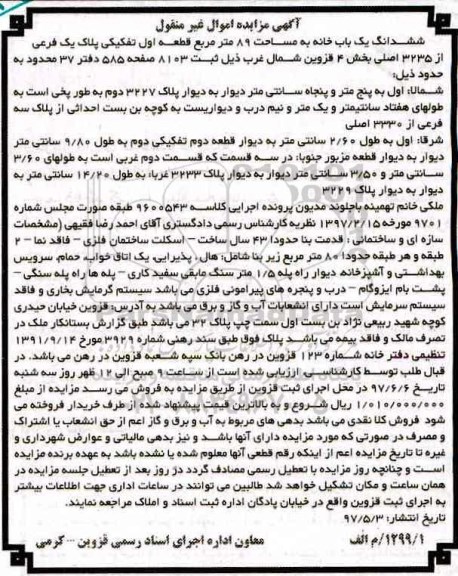 آگهی مزایده اموال غیر منقول
ششدانگ یک باب خانه به مساحت ۸۹ متر مربع قطعه اول تفکیکی پلاک یک فرعی
از ۳۲۳۵ اصلی بخش ۴ قزوین شمال غرب ذیل ثبت ۸۱۰۳ صفحه ۵۸۵ دفتر ۳۷ محدود به
حدود ذیل:
شمالا: اول به پنج متر و پنجاه سانتی متر دیوار به دیوار پلاک ۳۲۲۷ دوم به طور پخی است به
طولهای هفتاد سانتیمتر و یک متر و نیم درب و دیواریست به کوچه بن بست احداثی از پلاک سه
فرعی از ۳۳۳۰ اصلی
شرقا: اول به طول ۲/۶۰ سانتی متر به دیوار قطعه دوم تفکیکی دوم به طول ۹/۸۰ سانتی متر
دیوار به دیوار قطعه مزبور جنوبا: در سه قسمت که قسمت دوم غربی است به طولهای ۳/۶۰
سانتی متر و ۳/۵۰ سانتی متر دیوار به دیوار پلاک ۳۲۳۳ غربا: به طول ۱۴/۲۰ سانتی متر به
دیوار به دیوار پلاک ۳۲۲۹
ملکی خانم تهمینه باجلوند مدیون پرونده اجرایی کلاسه ۹۶۰۰۵۴۳ طبقه صورت مجلس شماره
۹۷۰۱ مورخه ۱۳۹۷/۲/۱۵ نظریه کارشناس رسمی دادگستری آقای احمد رضا فقیهی (مشخصات
سازه ای و ساختمانی : قدمت بنا حدودا ۴۳ سال ساخت – اسکلت ساختمان فلزی – فاقد نما – ۲
طبقه و هر طبقه حدودا ۸۰ متر مربع زیر بنا شامل: هال ، پذیرایی، یک اتاق خواب، حمام، سرویس
بهداشتی و آشپزخانه. دیوار راه پله ۱/۵ متر سنگ مابقی سفید کاری – پله ها راه پله سنگی –
پشت بام ایزوگام – درب و پنجره های پیرامونی فلزی می باشد سیستم گرمایش بخاری و فاقد
سیستم سرمایش است دارای انشعابات آب و گاز و برق می باشد به آدرس: قزوین خیابان حیدری
کوچه شهید ربیعی نژاد بن بست اول سمت چپ پلاک ۳۲ می باشد طبق گزارش بستانکار ملک در
تصرف مالک و فاقد بیمه می باشد پلاک فوق طبق سند رهنی شماره ۳۹۲۹ مورخ ۱۳۹۱/۹/۱۴
تنظیمی دفتر خانه شماره ۱۲۳ قزوین در رهن بانک سپه شعبه قزوین در رهن می باشد. در
قبال طلب توسط کارشناسی ارزیابی شده است از ساعت ۹ صبح الی ۱۲ ظهر روز سه شنبه
تاریخ ۹۷/۶/۶ در محل اجرای ثبت قزوین از طریق مزایده به فروش می رسد مزایده از مبلغ
۱/۰۱۰/۰۰۰/۰۰۰ ریال شروع و به بالاترین قیمت پیشنهاد شده از طرف خریدار فروخته می
شود فروش کلا نقدی می باشد بدهی های مربوط به آب و برق و گاز اعم از حق انشعاب یا اشتراک
و مصرف در صورتی که مورد مزایده دارای آنها باشد و نیز بدهی مالیاتی و عوارض شهرداری و
غیره تا تاریخ مزایده اعم از اینکه رقم قطعی آنها معلوم شده یا نشده باشد به عهده برنده مزایده
است و چنانچه روز مزایده با تعطیل رسمی مصادف گردد در روز بعد از تعطیل جلسه مزایده در
همان ساعت و مکان تشکیل خواهد شد طالبین می توانند در ساعات اداری جهت اطلاعات بیشتر
به اجرای ثبت قزوین واقع در خیابان پادگان اداره ثبت اسناد و املاک مراجعه نمایند.
تاریخ انتشار: ۹۷/۵/۳
۱۲۹۹/۱/م الف معاون اداره اجرای اسناد رسمی قزوین – کرمی